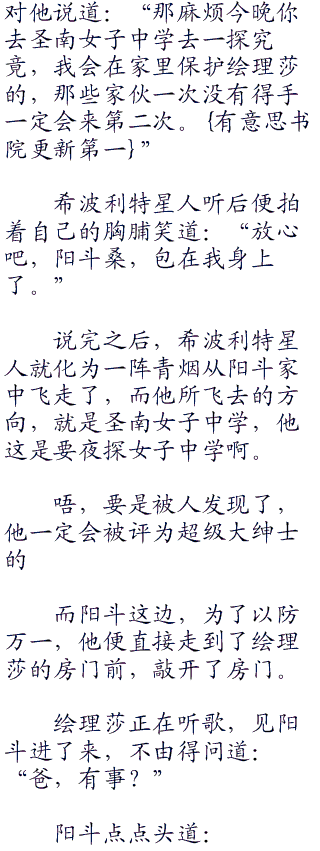 对他说道：“那麻烦今晚你
去圣南女子中学去一探究
竟，我会在家里保护绘理莎
的，那些家伙一次没有得手
一定会来第二次。{有意思书
院更新第一}”
希波利特星人听后便拍
着自己的胸脯笑道：“放心
吧，阳斗桑，包在我身上
了。”
说完之后，希波利特星
人就化为一阵青烟从阳斗家
中飞走了，而他所飞去的方
向，就是圣南女子中学，他
这是要夜探女子中学啊。
唔，要是被人发现了，
他一定会被评为超级大绅士
的
而阳斗这边，为了以防
万一，他便直接走到了绘理
莎的房门前，敲开了房门。
绘理莎正在听歌，见阳
斗进了来，不由得问道：
“爸，有事？”
阳斗点点头道：